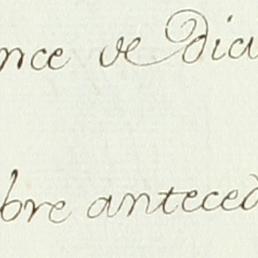 nce de dici
bre anteced